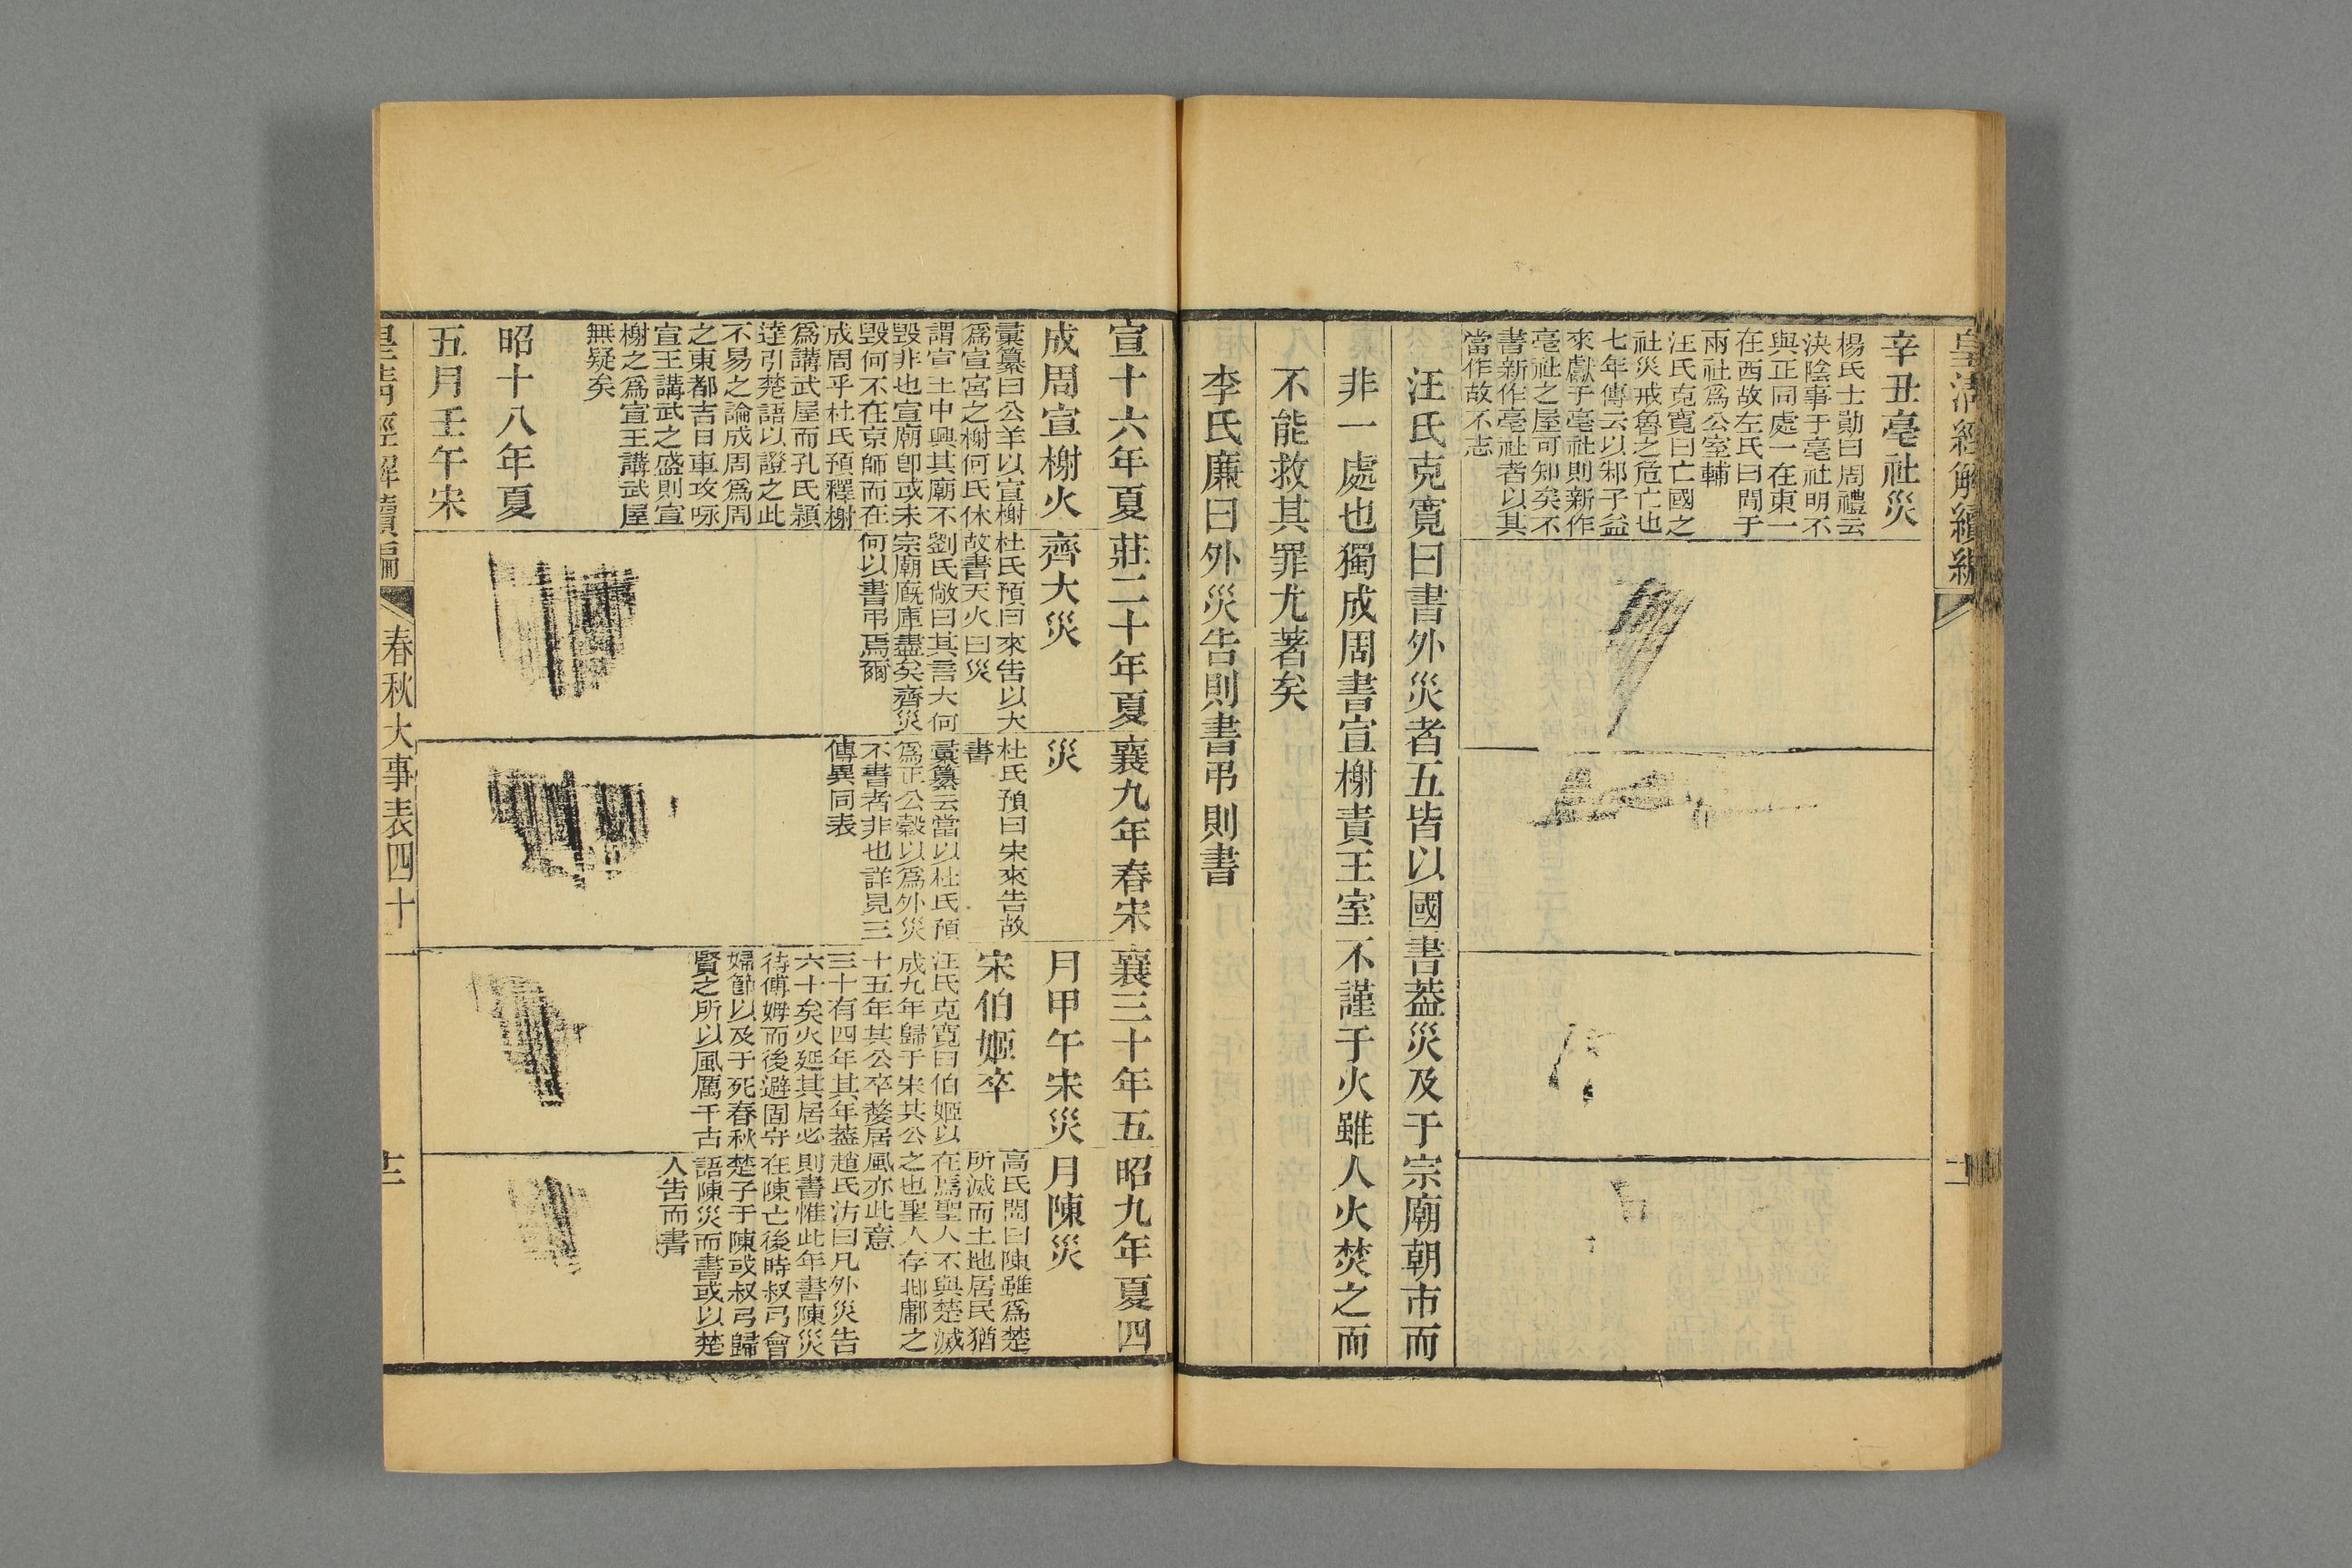 辛丑亳社災
楊氏士勛曰周禮云
決陰事于亳社明不
與正同處一在東一
在西故左氏曰閒于
兩社爲公室輔
汪氏克寬曰亡國之
社災戒魯之危亡也
七年傳云以邾子益
來獻于亳社則新作
亳社之屋可知矣不
書新作亳社者以其
當作故不志
汪氏克寬曰書外災者五皆以國書葢災及于宗廟朝市而
非一處也獨成周書宣榭責王室不謹于火雖人火焚之而
不能救其罪尤著矣
李氏廉曰外災告則書弔則書
宣十六年夏
成周宣榭火
彚纂曰公羊以宣榭
爲宣宮之榭何氏休
謂宣王中興其廟不
毀非也宣廟卽或未
毀何不在京師而在
成周乎杜氏預釋榭
爲講武屋而孔氏穎
達引楚語以證之此
不易之論成周爲周
之東都吉日車攻咏
宣王講武之盛則宣
榭之爲宣王講武屋
無疑矣
莊二十年夏
齊大災
杜氏預曰來告以大
故書天火曰災
劉氏敞曰其言大何
宗廟廐庫盡矣齊災
何以書弔焉爾
襄九年春宋
災
杜氏預曰宋來告故
書
彚纂云當以杜氏預
爲正公穀以爲外災
不書者非也詳見三
傳異同表
襄三十年五
月甲午宋災
宋伯姬卒
汪氏克寬曰伯姬以
成九年歸于宋共公
十五年其公卒嫠居
三十有四年其年葢
六十矣火延其居必
待傅姆而後避固守
婦節以及于死春秋
賢之所以風厲千古
昭九年夏四
月陳災
高氏閌曰陳雖爲楚
所滅而土地居民猶
在焉聖人不與楚滅
之也聖人存邶鄘之
風亦此意
趙氏汸曰凡外災告
則書惟此年書陳災
在陳亡後時叔弓會
楚子于陳或叔弓歸
語陳災而書或以楚
人告而書
昭十八年夏
五月壬午宋
皇淸經解續編
春秋大事表四十